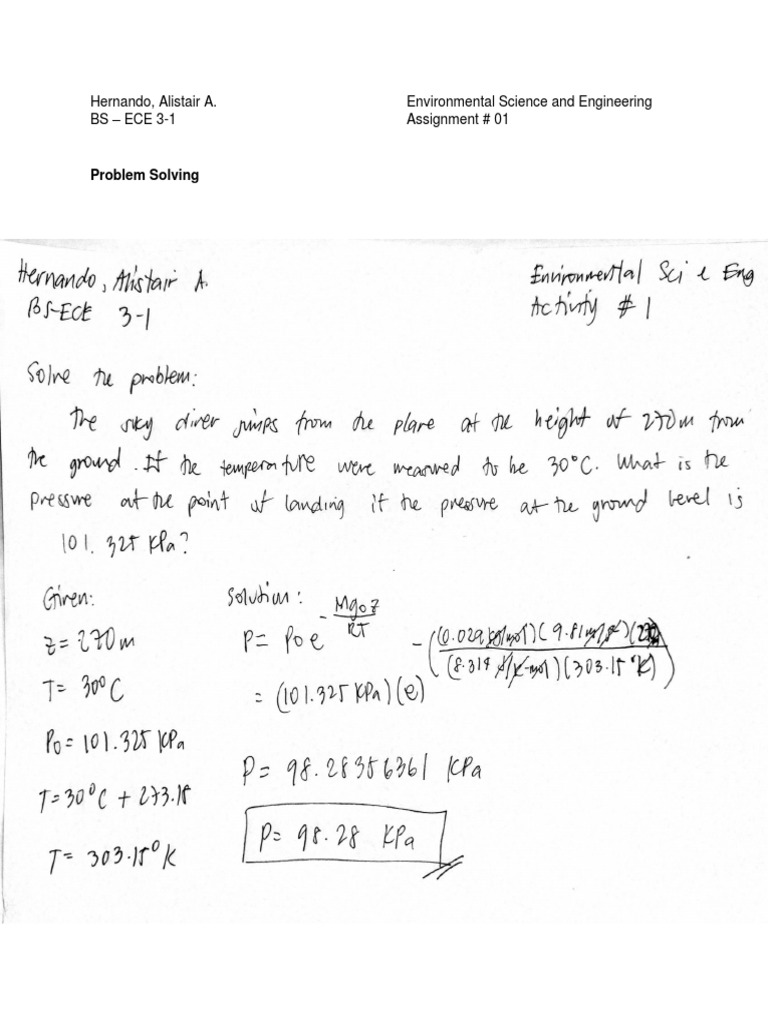 Hernando, Alistair A.
Environmental Science and Engineering
BS – ECE 3-1
Assignment # 01
Problem Solving
Hernando, Alistair A.
Environmental Sci & Eng
BS-ECE 3-1
Activity # 1
Solve the problem:
The sky diver jumps from the plane at the height of 270m from
the ground. If the temperature were measured to be 30°C. What is the
pressure at the point of landing if the pressure at the ground level is
101.325 KPa?
Given:
Z = 270m
T = 30°C
P0 = 101.325 KPa
T = 30°C + 273.15
T = 303.15°K
Solution:
P = P0 e^-(Mg0Z/RT)
= (101.325 KPa)(e)^-((0.029 kg/mol)(9.81 m/s²)(270)/(8.314 J/K-mol)(303.15°K))
P = 98.28356361 KPa
P = 98.28 KPa